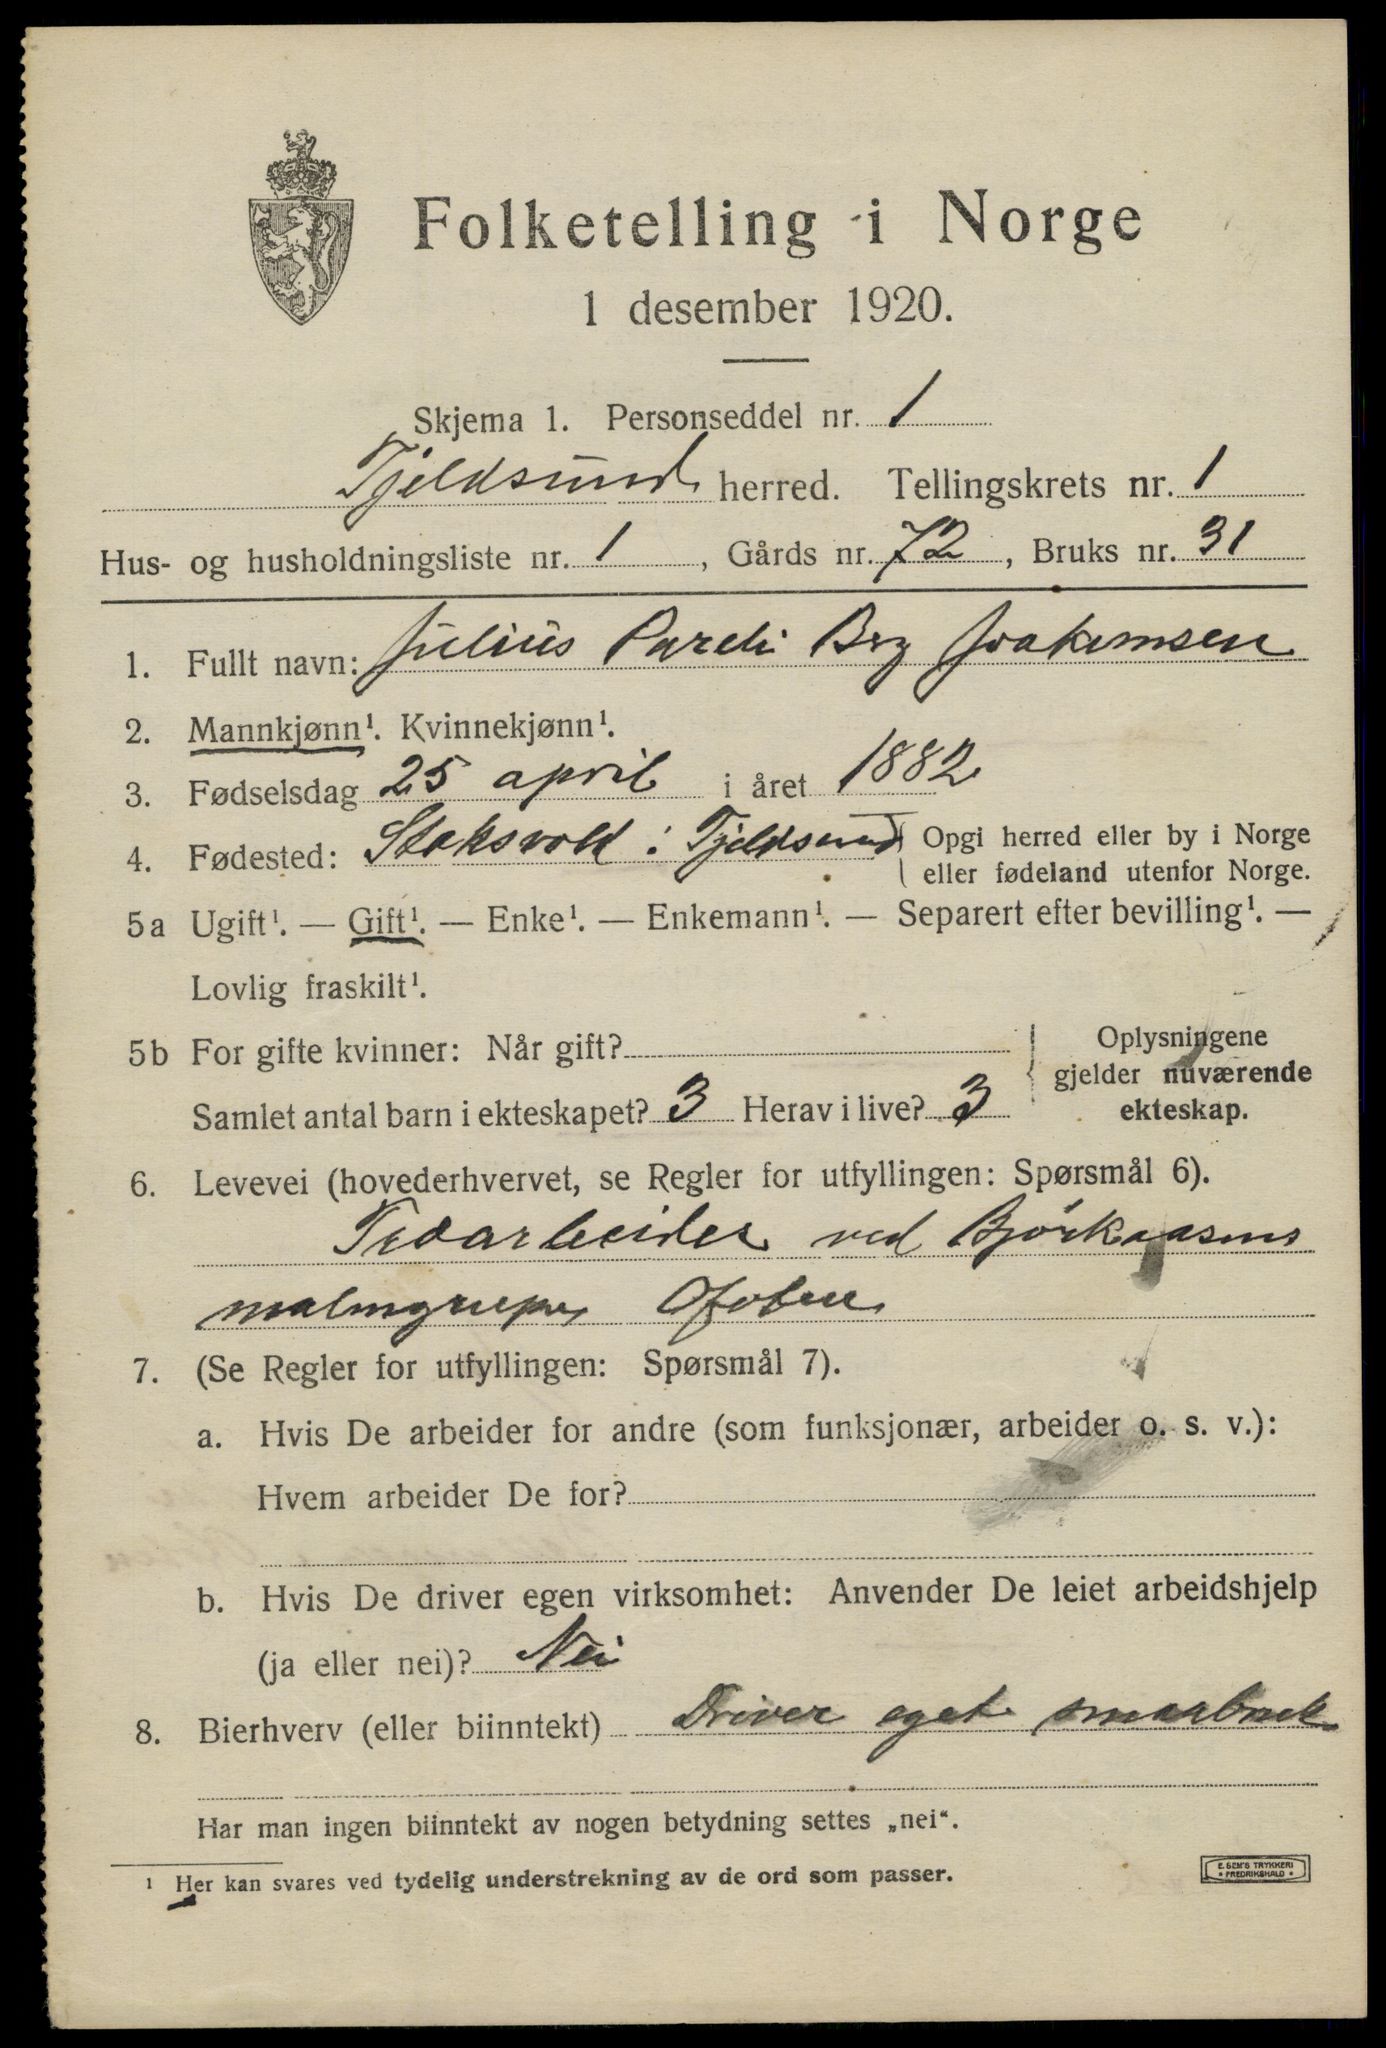 Folketelling i Norge
1 desember 1920.
Skjema 1. Personseddel nr. 1
Tjeldsund herred. Tellingskrets nr. 1
Hus- og husholdningsliste nr. 1, Gårds nr. 72, Bruks nr. 31
1. Fullt navn: Julius Berg Joakimsen
2. Mannkjønn¹. Kvinnekjønn¹.
3. Fødselsdag 25 april i året 1882
4. Fødested: Staksvold i Tjeldsund { Opgi herred eller by i Norge
eller fødeland utenfor Norge.
5a Ugift¹. — Gift¹. — Enke¹. — Enkemann¹. — Separert efter bevilling¹. —
Lovlig fraskilt¹.
5b For gifte kvinner: Når gift?
Samlet antal barn i ekteskapet? 3 Herav i live? 3
Oplysningene
gjelder nuværende
ekteskap.
6. Levevei (hovederhvervet, se Regler for utfyllingen: Spørsmål 6).
ved Bjørkaasens
malmgruper Ofoten
7. (Se Regler for utfyllingen: Spørsmål 7).
a. Hvis De arbeider for andre (som funksjonær, arbeider o. s. v.):
Hvem arbeider De for?
b. Hvis De driver egen virksomhet: Anvender De leiet arbeidshjelp
(ja eller nei)? Nei
8. Bierhverv (eller biinntekt) Driver eget smaabruk
Har man ingen biinntekt av nogen betydning settes „nei“.
¹ Her kan svares ved tydelig understrekning av de ord som passer.
E. SEM'S TRYKKERI
• FREDRIKSHALD •